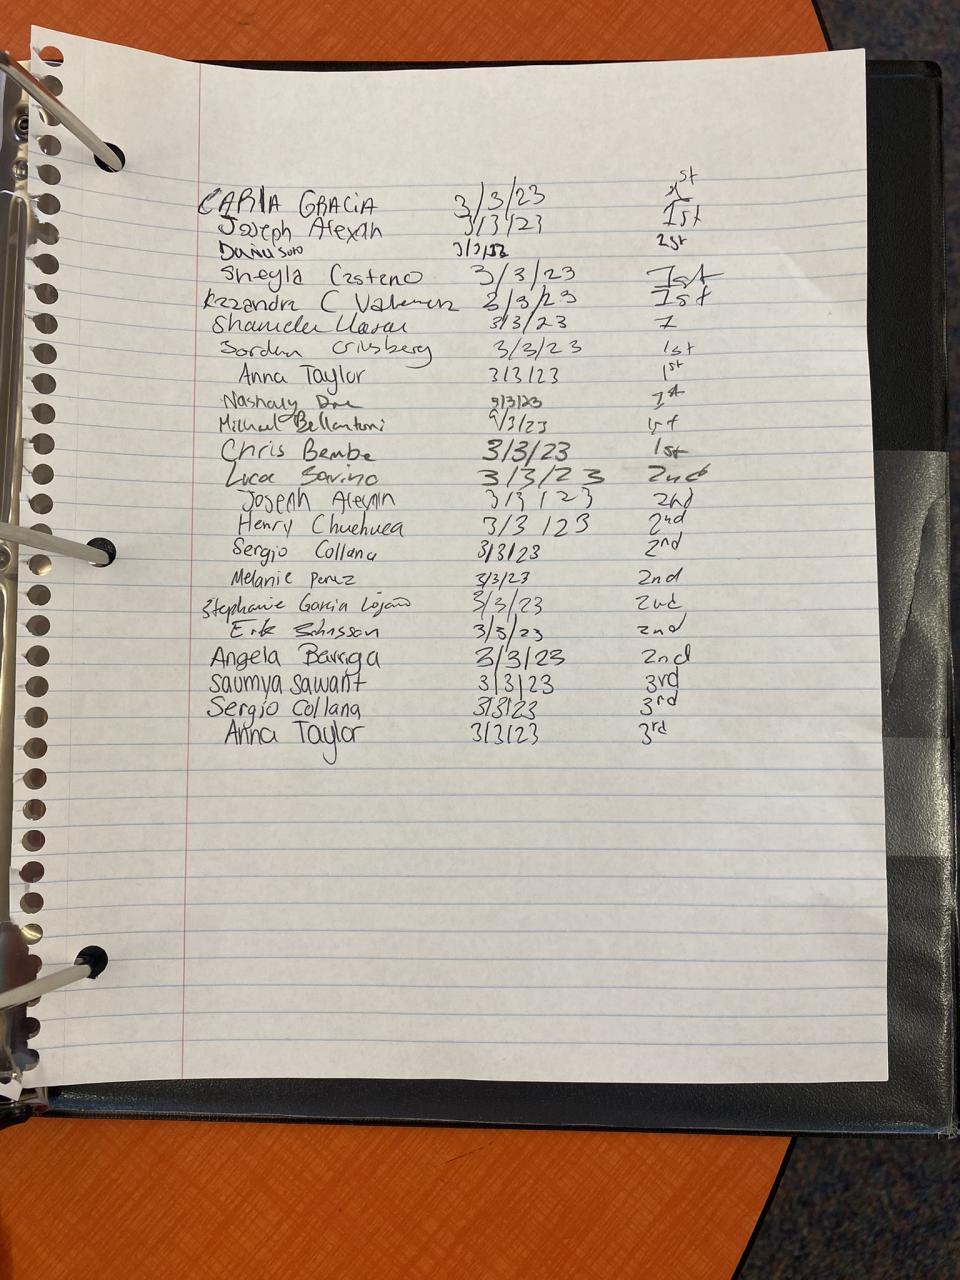 CARLA GRACIA 3/3/23 1st
Joseph Alexan 3/3/23 1st
3/3/23
Sheyla Casteno 3/3/23 1st
Kazandra C 3/3/23 1st
3/3/23 1
Jordan 3/3/23 1st
Anna Taylor 3/3/23 1st
Nashaly 3/3/23 1st
Michael Bellantoni 3/23 1st
Chris Bembe 3/3/23 1st
Luca Savino 3/3/23 2nd
Joseph Alexan 3/3/23 2nd
Henry Chuehuea 3/3/23 2nd
Sergio Collana 3/3/23 2nd
Melanie Perez 3/3/23 2nd
Stephanie Garcia Lojano 3/3/23 2nd
Erik Johnsson 3/3/23 2nd
Angela Barriga 3/3/23 2nd
Saumya Sawant 3/3/23 3rd
Sergio Collana 3/3/23 3rd
Anna Taylor 3/3/23 3rd